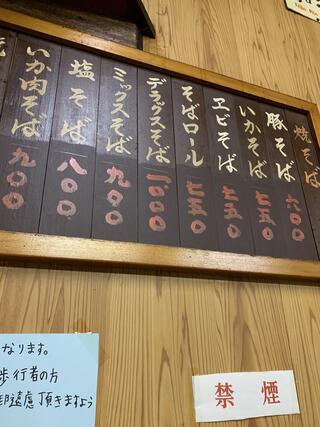 焼そば
豚そば 六〇〇
いかそば 七五〇
エビそば 七五〇
そばロール 七五〇
デラックスそば 一〇〇〇
ミックスそば 九〇〇
塩そば 八〇〇
いか肉そば 九〇〇
なります。
歩行者の方
御遠慮頂きますよう
禁煙